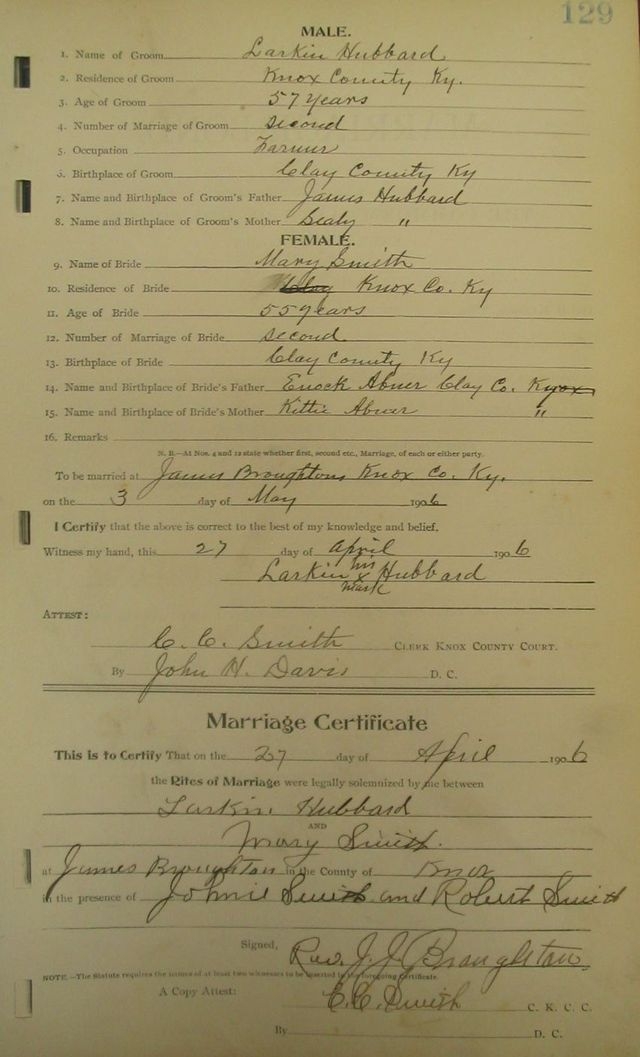 129
MALE.
1. Name of Groom Larkin Hubbard
2. Residence of Groom Knox County Ky.
3. Age of Groom 57 years
4. Number of Marriage of Groom second
5. Occupation Farmer
6. Birthplace of Groom Clay County Ky
7. Name and Birthplace of Groom's Father James Hubbard
8. Name and Birthplace of Groom's Mother Sealy "
FEMALE.
9. Name of Bride Mary Smith
10. Residence of Bride Clay Knox Co. Ky
11. Age of Bride 55 years
12. Number of Marriage of Bride second.
13. Birthplace of Bride Clay County Ky
14. Name and Birthplace of Bride's Father Enock Abner Clay Co. Ky
15. Name and Birthplace of Bride's Mother Kittie Abner "
16. Remarks
N. B.—At Nos. 4 and 12 state whether first, second etc., Marriage, of each or either party.
To be married at James Broughtons Knox Co. Ky.
on the 3 day of May 1906
I Certify that the above is correct to the best of my knowledge and belief.
Witness my hand, this 27 day of April 1906
his
Larkin x Hubbard
mark
ATTEST:
C. C. Smith CLERK KNOX COUNTY COURT.
By John H. Davis D. C.
Marriage Certificate
This is to Certify That on the 27 day of April 1906
the Rites of Marriage were legally solemnized by me between
Larkin Hubbard
AND
Mary Smith.
at James Broughton in the County of Knox
in the presence of Johnie Smith and Robert Smith
Signed, Rev. J. J. Broughton
NOTE.—The Statute requires the names of at least two witnesses to be inserted in the foregoing Certificate.
A Copy Attest: C. C. Smith C. K. C. C.
By D. C.